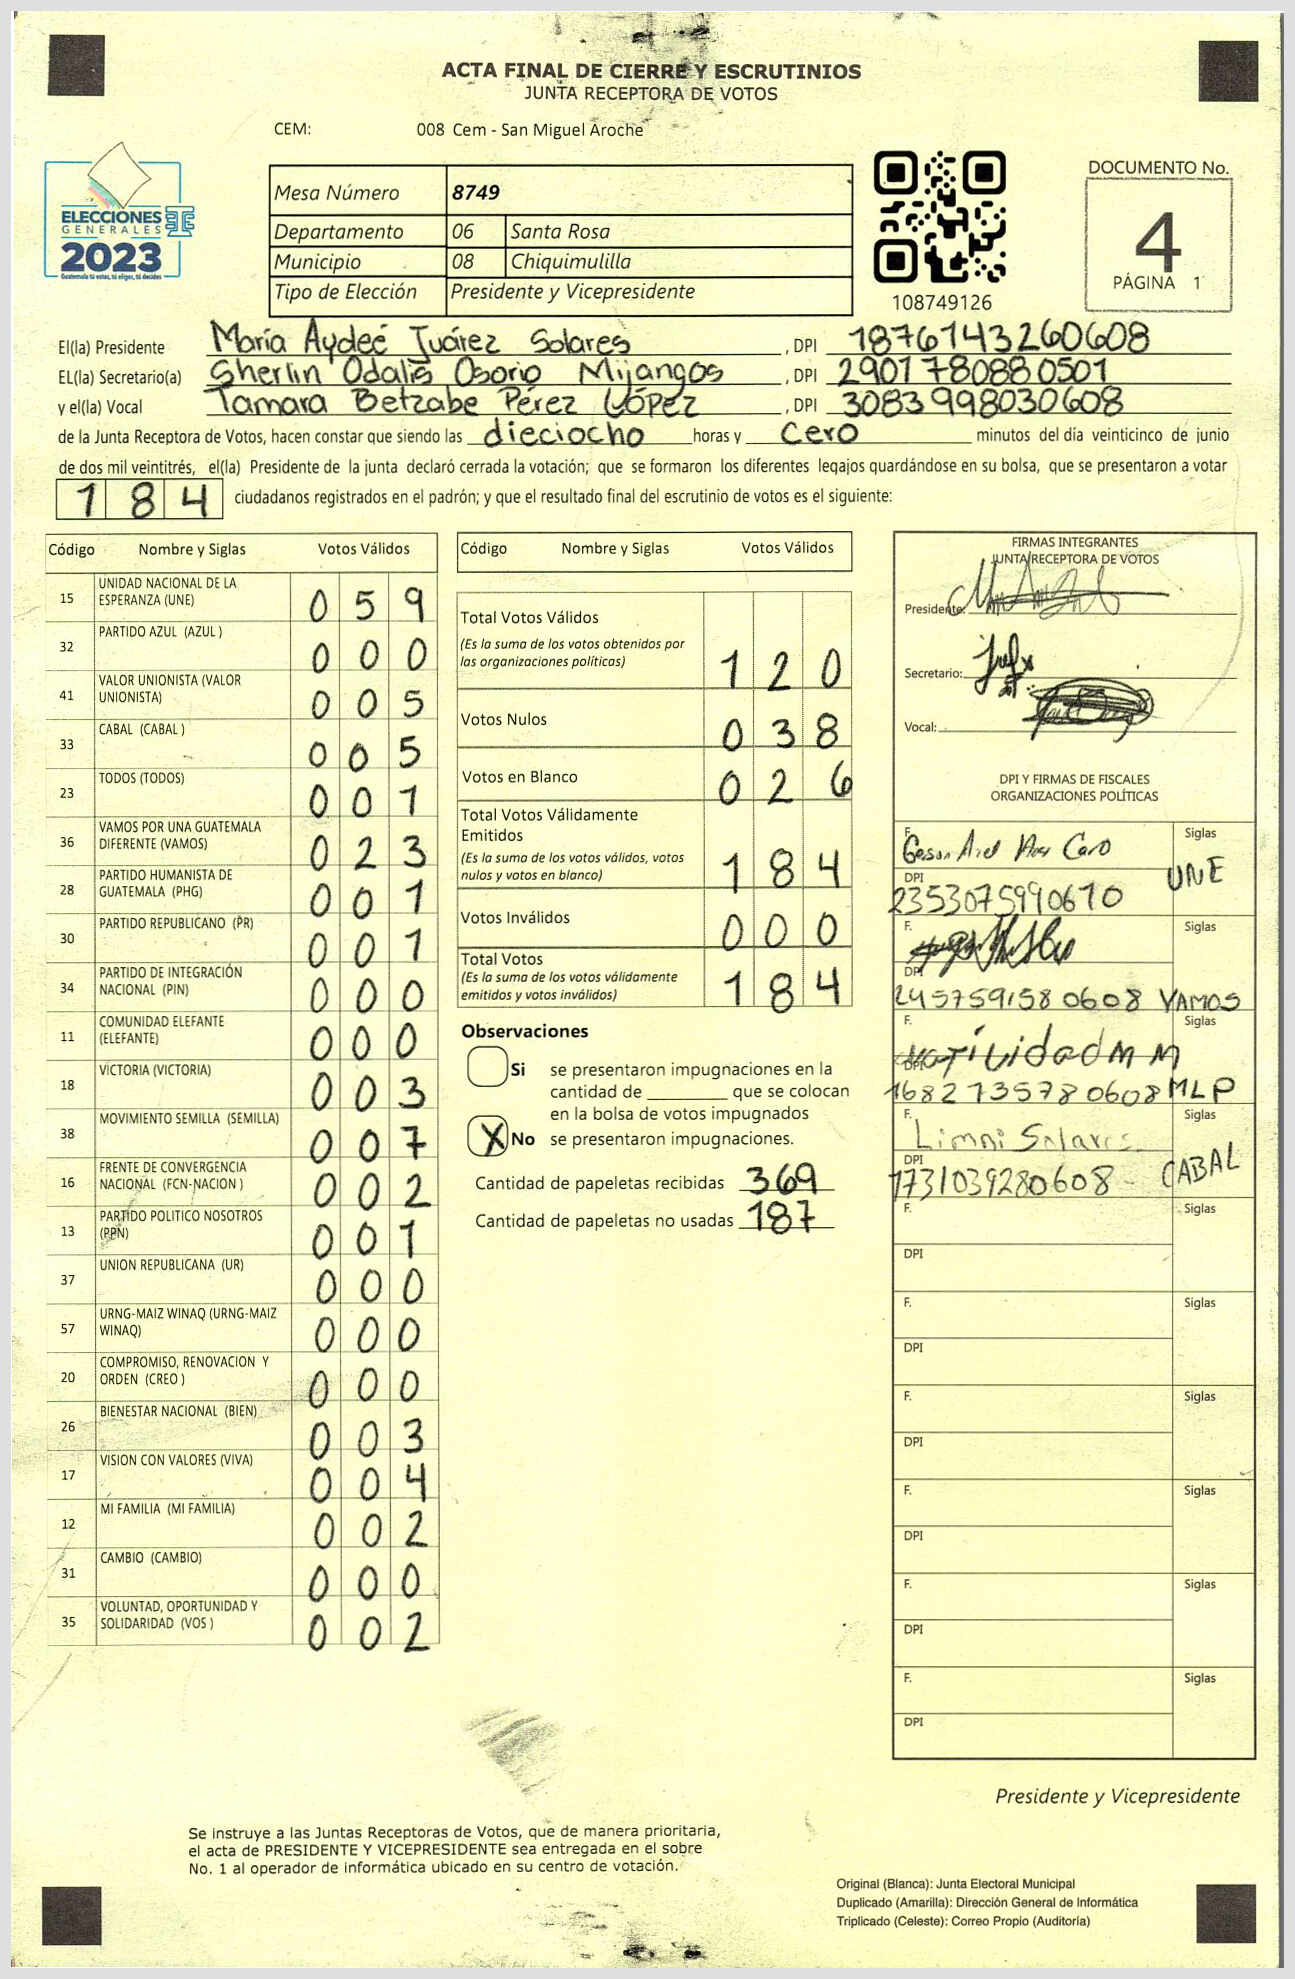 ACTA FINAL DE CIERRE Y ESCRUTINIOS
JUNTA RECEPTORA DE VOTOS
CEM: 008 Cem - San Miguel Aroche
ELECCIONES
GENERALES
2023
Guatemala tú votas, tú eliges, tú decides
Mesa Número 8749
Departamento 06 Santa Rosa
Municipio 08 Chiquimulilla
Tipo de Elección Presidente y Vicepresidente
108749126
DOCUMENTO No.
4
PÁGINA 1
El(la) Presidente María Aydeé Juárez Solares , DPI 1876143260608
EL(la) Secretario(a) Sherlin Odalis Osorio Mijangos , DPI 2901780880501
y el(la) Vocal Tamara Betzabe Pérez López , DPI 3083998030608
de la Junta Receptora de Votos, hacen constar que siendo las dieciocho horas y cero minutos del día veinticinco de junio
de dos mil veintitrés, el(la) Presidente de la junta declaró cerrada la votación; que se formaron los diferentes legajos guardándose en su bolsa, que se presentaron a votar
184 ciudadanos registrados en el padrón; y que el resultado final del escrutinio de votos es el siguiente:
Código Nombre y Siglas Votos Válidos
15 UNIDAD NACIONAL DE LA ESPERANZA (UNE) 059
32 PARTIDO AZUL (AZUL ) 000
41 VALOR UNIONISTA (VALOR UNIONISTA) 005
33 CABAL (CABAL ) 005
23 TODOS (TODOS) 001
36 VAMOS POR UNA GUATEMALA DIFERENTE (VAMOS) 023
28 PARTIDO HUMANISTA DE GUATEMALA (PHG) 001
30 PARTIDO REPUBLICANO (PR) 001
34 PARTIDO DE INTEGRACIÓN NACIONAL (PIN) 000
11 COMUNIDAD ELEFANTE (ELEFANTE) 000
18 VICTORIA (VICTORIA) 003
38 MOVIMIENTO SEMILLA (SEMILLA) 007
16 FRENTE DE CONVERGENCIA NACIONAL (FCN-NACION ) 002
13 PARTIDO POLITICO NOSOTROS (PPN) 001
37 UNION REPUBLICANA (UR) 000
57 URNG-MAIZ WINAQ (URNG-MAIZ WINAQ) 000
20 COMPROMISO, RENOVACION Y ORDEN (CREO ) 000
26 BIENESTAR NACIONAL (BIEN) 003
17 VISION CON VALORES (VIVA) 004
12 MI FAMILIA (MI FAMILIA) 002
31 CAMBIO (CAMBIO) 000
35 VOLUNTAD, OPORTUNIDAD Y SOLIDARIDAD (VOS ) 002
Código Nombre y Siglas Votos Válidos
Total Votos Válidos
(Es la suma de los votos obtenidos por
las organizaciones políticas) 120
Votos Nulos 038
Votos en Blanco 026
Total Votos Válidamente
Emitidos
(Es la suma de los votos válidos, votos
nulos y votos en blanco) 184
Votos Inválidos 000
Total Votos
(Es la suma de los votos válidamente
emitidos y votos inválidos) 184
Observaciones
Si se presentaron impugnaciones en la
cantidad de ________ que se colocan
en la bolsa de votos impugnados
X No se presentaron impugnaciones.
Cantidad de papeletas recibidas 369
Cantidad de papeletas no usadas 187
FIRMAS INTEGRANTES
JUNTA RECEPTORA DE VOTOS
Presidente:
Secretario:
Vocal:
DPI Y FIRMAS DE FISCALES
ORGANIZACIONES POLÍTICAS
F. Siglas
DPI 2353075990610 UNE
F. Siglas
DPI 2457591580608 VAMOS
F. Natividad M M Siglas
DPI 1682735780608 MLP
F. Limni Solares Siglas
DPI 1731039280608 CABAL
F. Siglas
DPI
F. Siglas
DPI
F. Siglas
DPI
F. Siglas
DPI
F. Siglas
DPI
F. Siglas
DPI
Presidente y Vicepresidente
Se instruye a las Juntas Receptoras de Votos, que de manera prioritaria,
el acta de PRESIDENTE Y VICEPRESIDENTE sea entregada en el sobre
No. 1 al operador de informática ubicado en su centro de votación.
Original (Blanca): Junta Electoral Municipal
Duplicado (Amarilla): Dirección General de Informática
Triplicado (Celeste): Correo Propio (Auditoría)